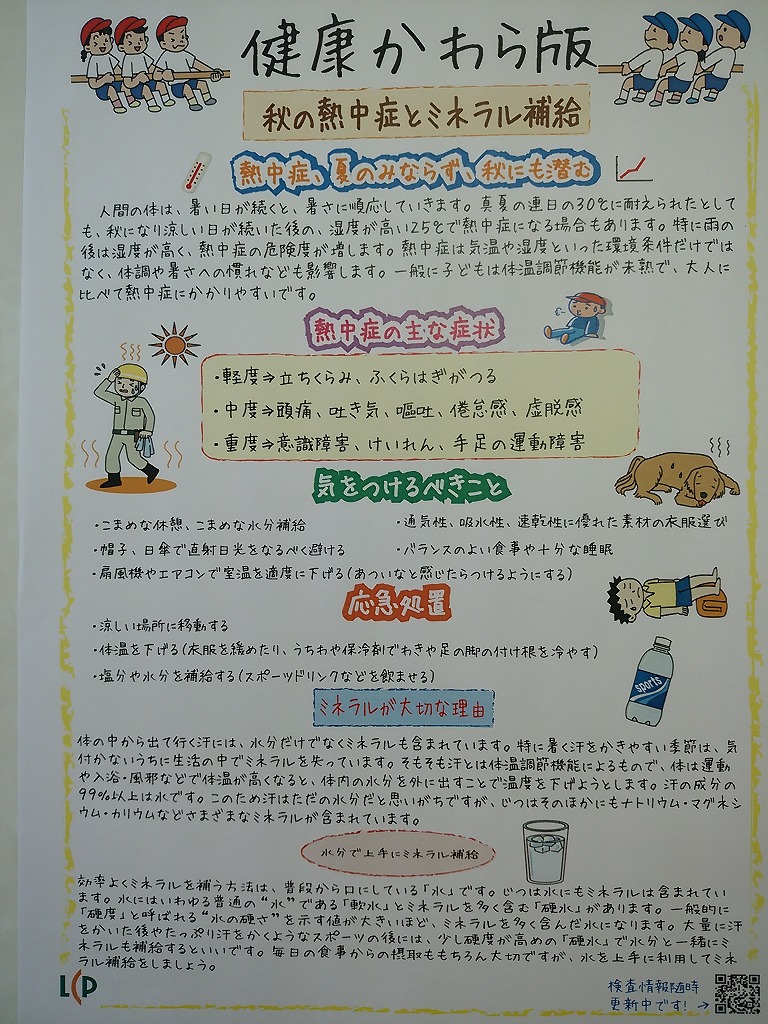 健康かわら版
秋の熱中症とミネラル補給
熱中症、夏のみならず、秋にも潜む
人間の体は、暑い日が続くと、暑さに順応していきます。真夏の連日の30℃に耐えられたとして
も、秋になり涼しい日が続いた後の、湿度が高い25℃で熱中症になる場合もあります。特に雨の
後は湿度が高く、熱中症の危険度が増します。熱中症は気温や湿度といった環境条件だけでは
なく、体調や暑さへの慣れなども影響します。一般に子どもは体温調節機能が未熟で、大人に
比べて熱中症にかかりやすいです。
熱中症の主な症状
・軽度⇒立ちくらみ、ふくらはぎがつる
・中度⇒頭痛、吐き気、嘔吐、倦怠感、虚脱感
・重度⇒意識障害、けいれん、手足の運動障害
気をつけるべきこと
・こまめな休憩、こまめな水分補給
・通気性、吸水性、速乾性に優れた素材の衣服選び
・帽子、日傘で直射日光をなるべく避ける
・バランスのよい食事や十分な睡眠
・扇風機やエアコンで室温を適度に下げる(あついなと感じたらつけるようにする)
応急処置
・涼しい場所に移動する
・体温を下げる(衣服を緩めたり、うちわや保冷剤でわきや足の脚の付け根を冷やす)
・塩分や水分を補給する(スポーツドリンクなどを飲ませる)
sports
ミネラルが大切な理由
体の中から出て行く汗には、水分だけでなくミネラルも含まれています。特に暑く汗をかきやすい季節は、気
付かないうちに生活の中でミネラルを失っています。そもそも汗とは体温調節機能によるもので、体は運動
や入浴・風邪などで体温が高くなると、体内の水分を外に出すことで温度を下げようとします。汗の成分の
99%以上は水です。このため汗はただの水分だと思いがちですが、じつはそのほかにもナトリウム・マグネシ
ウム・カリウムなどさまざまなミネラルが含まれています。
水分で上手にミネラル補給
効率よくミネラルを補う方法は、普段から口にしている「水」です。じつは水にもミネラルは含まれてい
ます。水にはいわゆる普通の“水”である「軟水」とミネラルを多く含む「硬水」があります。一般的に
「硬度」と呼ばれる“水の硬さ”を示す値が大きいほど、ミネラルを多く含んだ水になります。大量に汗
をかいた後やたっぷり汗をかくようなスポーツの後には、少し硬度が高めの「硬水」で水分と一緒にミネ
ラルも補給するといいです。毎日の食事からの摂取ももちろん大切ですが、水を上手に利用してミネ
ラル補給をしましょう。
LCP
検査情報随時
更新中です!→